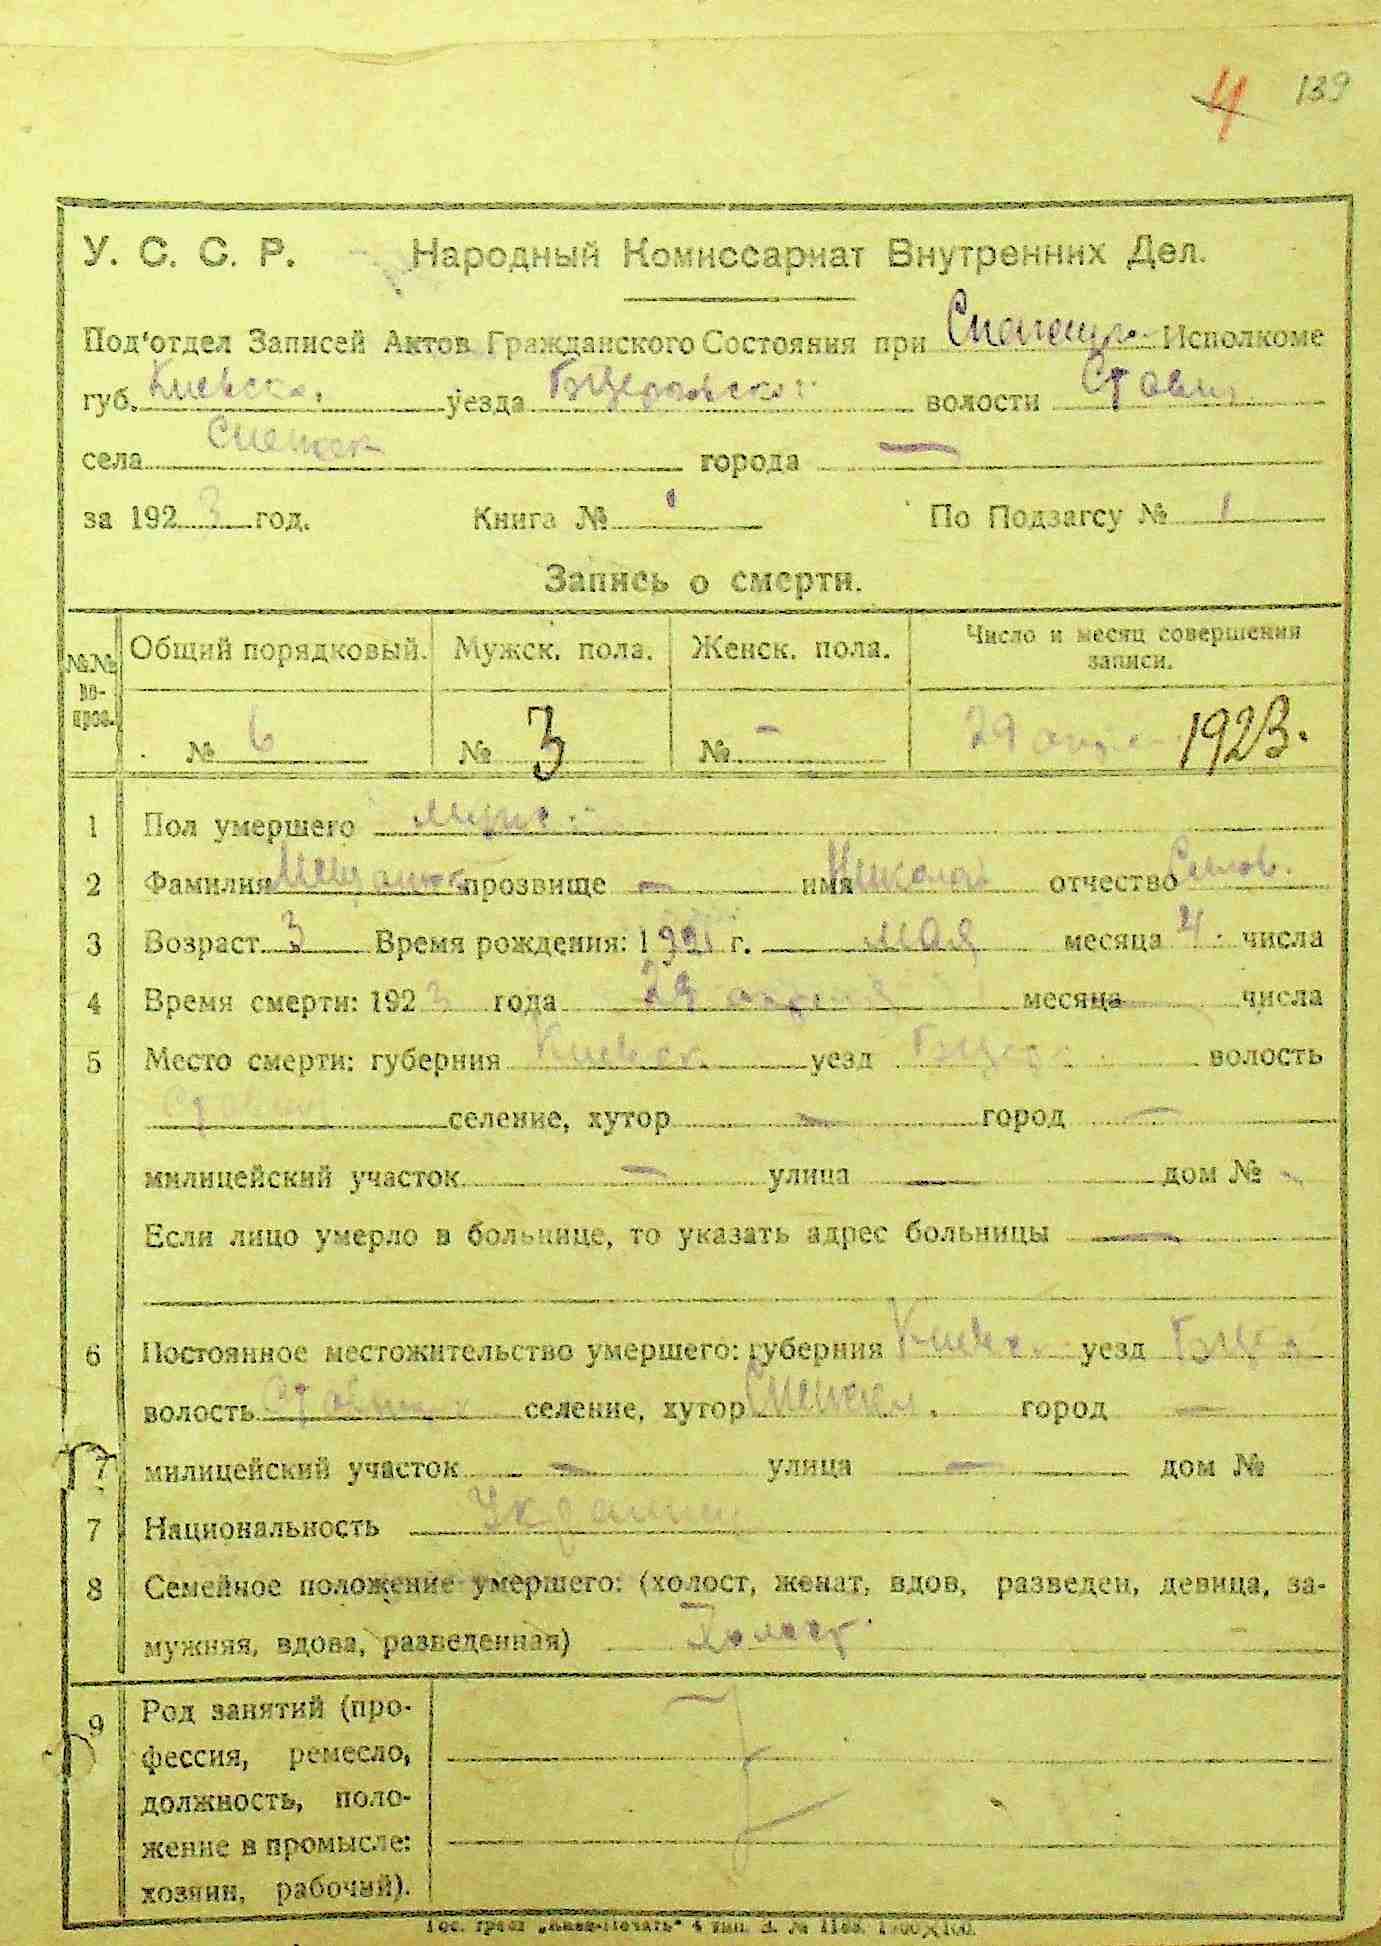 4 139
У. С. С. Р. Народный Комиссариат Внутренних Дел.
Под'отдел Записей Актов Гражданского Состояния при Исполкоме
губ. Киевско. уезда волости Стави
села города —
за 1923 год. Книга № 1 По Подзагсу № 1
Запись о смерти.
№№ вопрос. Общий порядковый. Мужск. пола. Женск. пола. Число и месяц совершения записи.
№ 6 № 3 № - 29 апре 1923.
1 Пол умершего муж.
2 Фамилия прозвище — имя Николай отчество
3 Возраст 3 Время рождения: 1921 г. мая месяца 4 числа
4 Время смерти: 1923 года 29 апреля месяца числа
5 Место смерти: губерния Киевск уезд волость
Ставищ селение, хутор — город —
милицейский участок — улица — дом № -
Если лицо умерло в больнице, то указать адрес больницы —
6 Постоянное местожительство умершего: губерния Киевск. уезд
волость селение, хутор город —
7 милицейский участок — улица — дом №
7 Национальность Украинец
8 Семейное положение умершего: (холост, женат, вдов, разведен, девица, за-
мужняя, вдова, разведенная) Холост.
9 Род занятий (про-
фессия, ремесло,
должность, поло-
жение в промысле:
хозяин, рабочий).
Гос. трест „Киев-Печать“ 4 тип. З. №